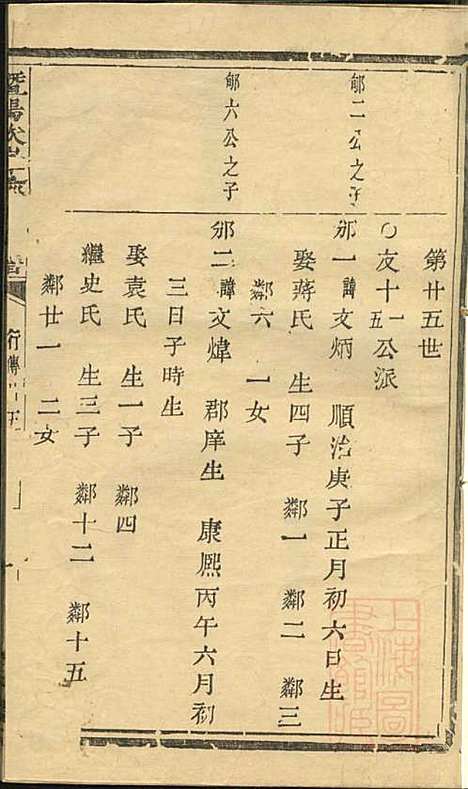 第廿五世
○友十一五公派
郇二公之子
邠一諱文炳 順治庚子正月初六日生
娶蔣氏 生四子 鄰一 鄰二 鄰三
鄰六 一女
郇六公之子
邠二諱文煒 郡庠生 康熙丙午六月初
三日子時生
娶袁氏 生一子 鄰四
繼史氏 生三子 鄰十二 鄰十五
鄰廿一 二女
暨陽
行傳
上海圖書館藏